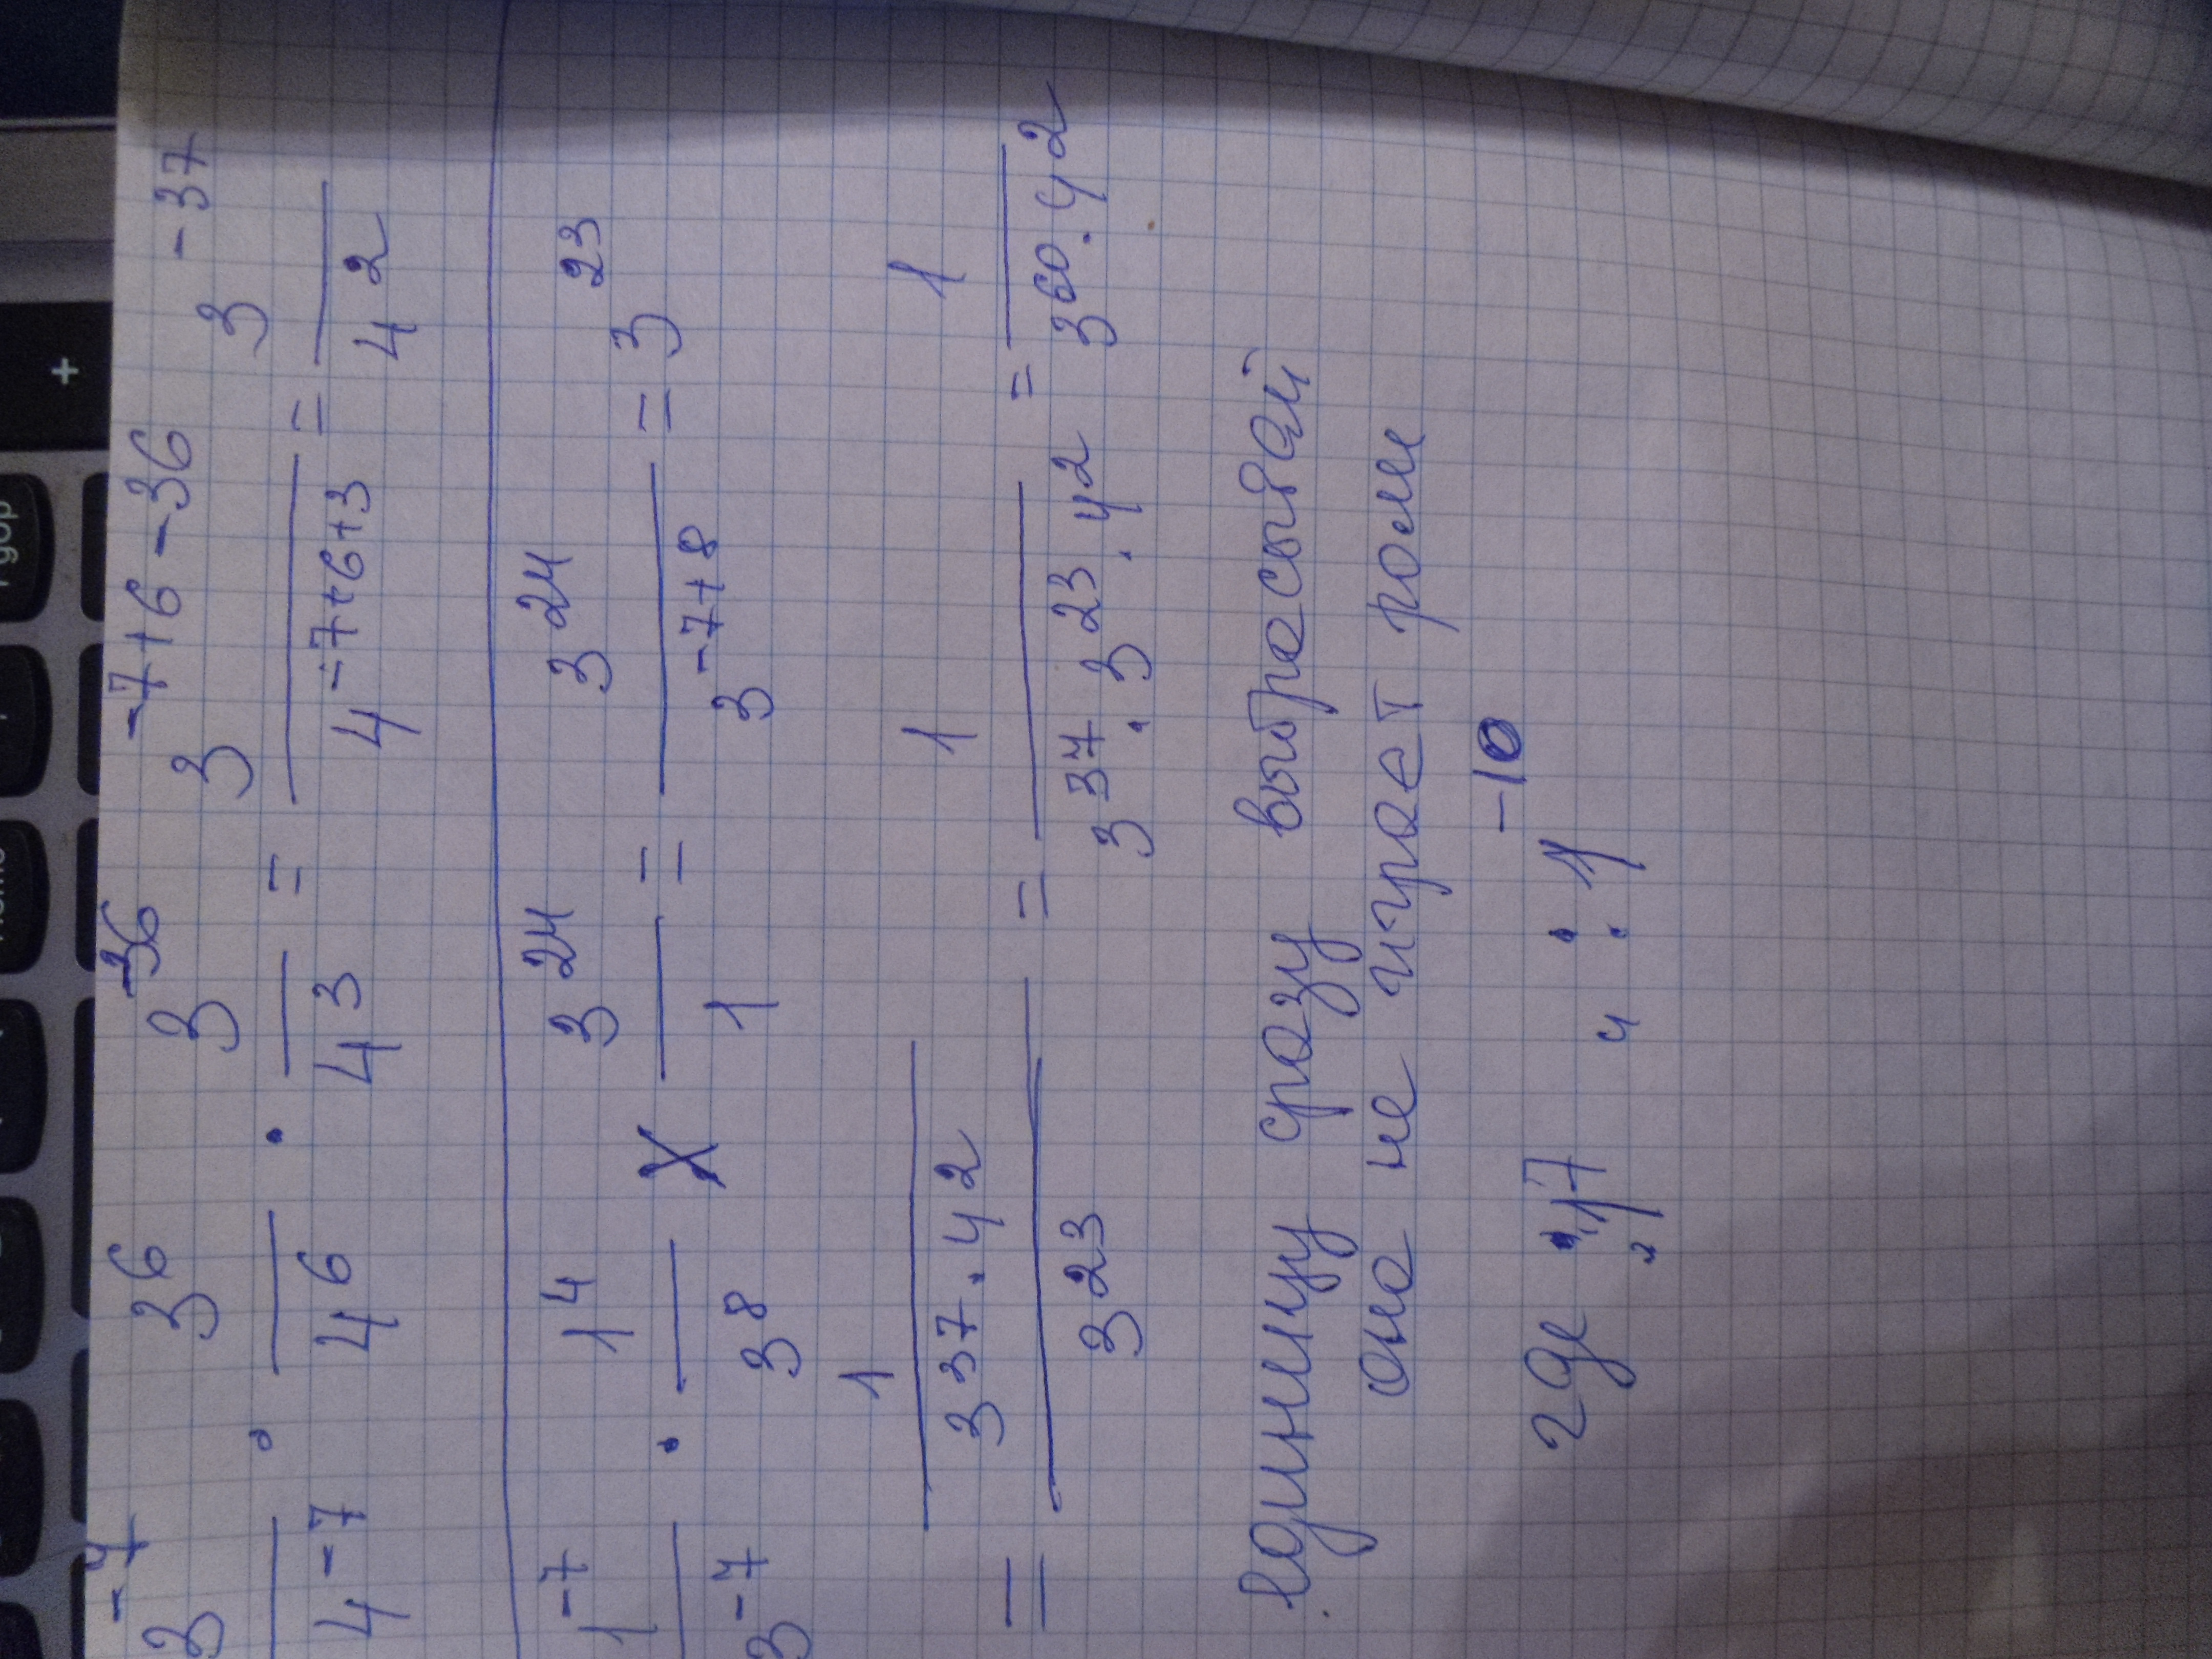 3^-7/4^-7 · 3^6/4^6 · 3^-36/4^3 = 3^-7+6-36/4^-7+6+3 = 3^-37/4^2
1^-7/3^-7 · 1^4/3^8 × 3^24/1 = 3^24/3^-7+8 = 3^23
= 1/3^37·4^2 / 3^23 = 1/3^37·3^23·4^2 = 1/3^60·4^2
единицу сразу выбрасывай
она не играет роли
где
+